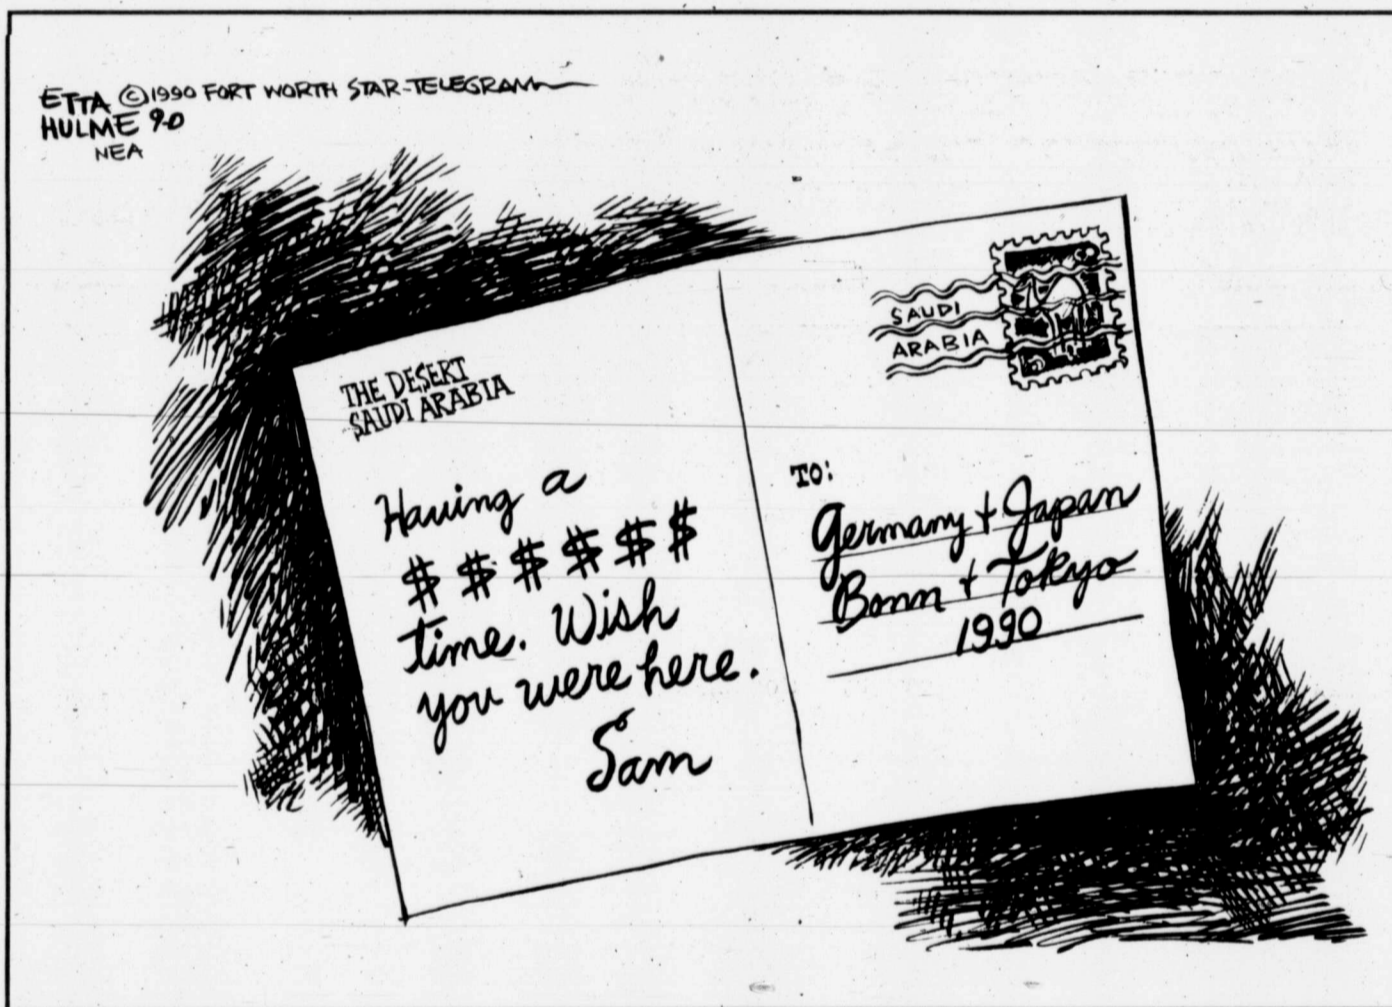 ETTA ©1990 FORT WORTH STAR-TELEGRAM
HULME 90
NEA
THE DESERT
SAUDI ARABIA
Having a
$ $ $ $ $ $
time. Wish
you were here.
Sam
SAUDI
ARABIA
TO:
Germany + Japan
Bonn + Tokyo
1990